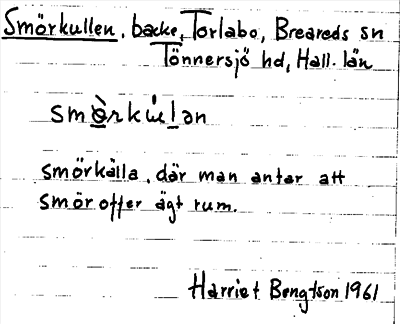 Smörkullen, backe, Torlabo, Breareds sn
Tönnersjö hd, Hall. län
smö̀rkùlan
smörkälla, där man antar att
smöroffer ägt rum.
Harriet Bengtson 1961